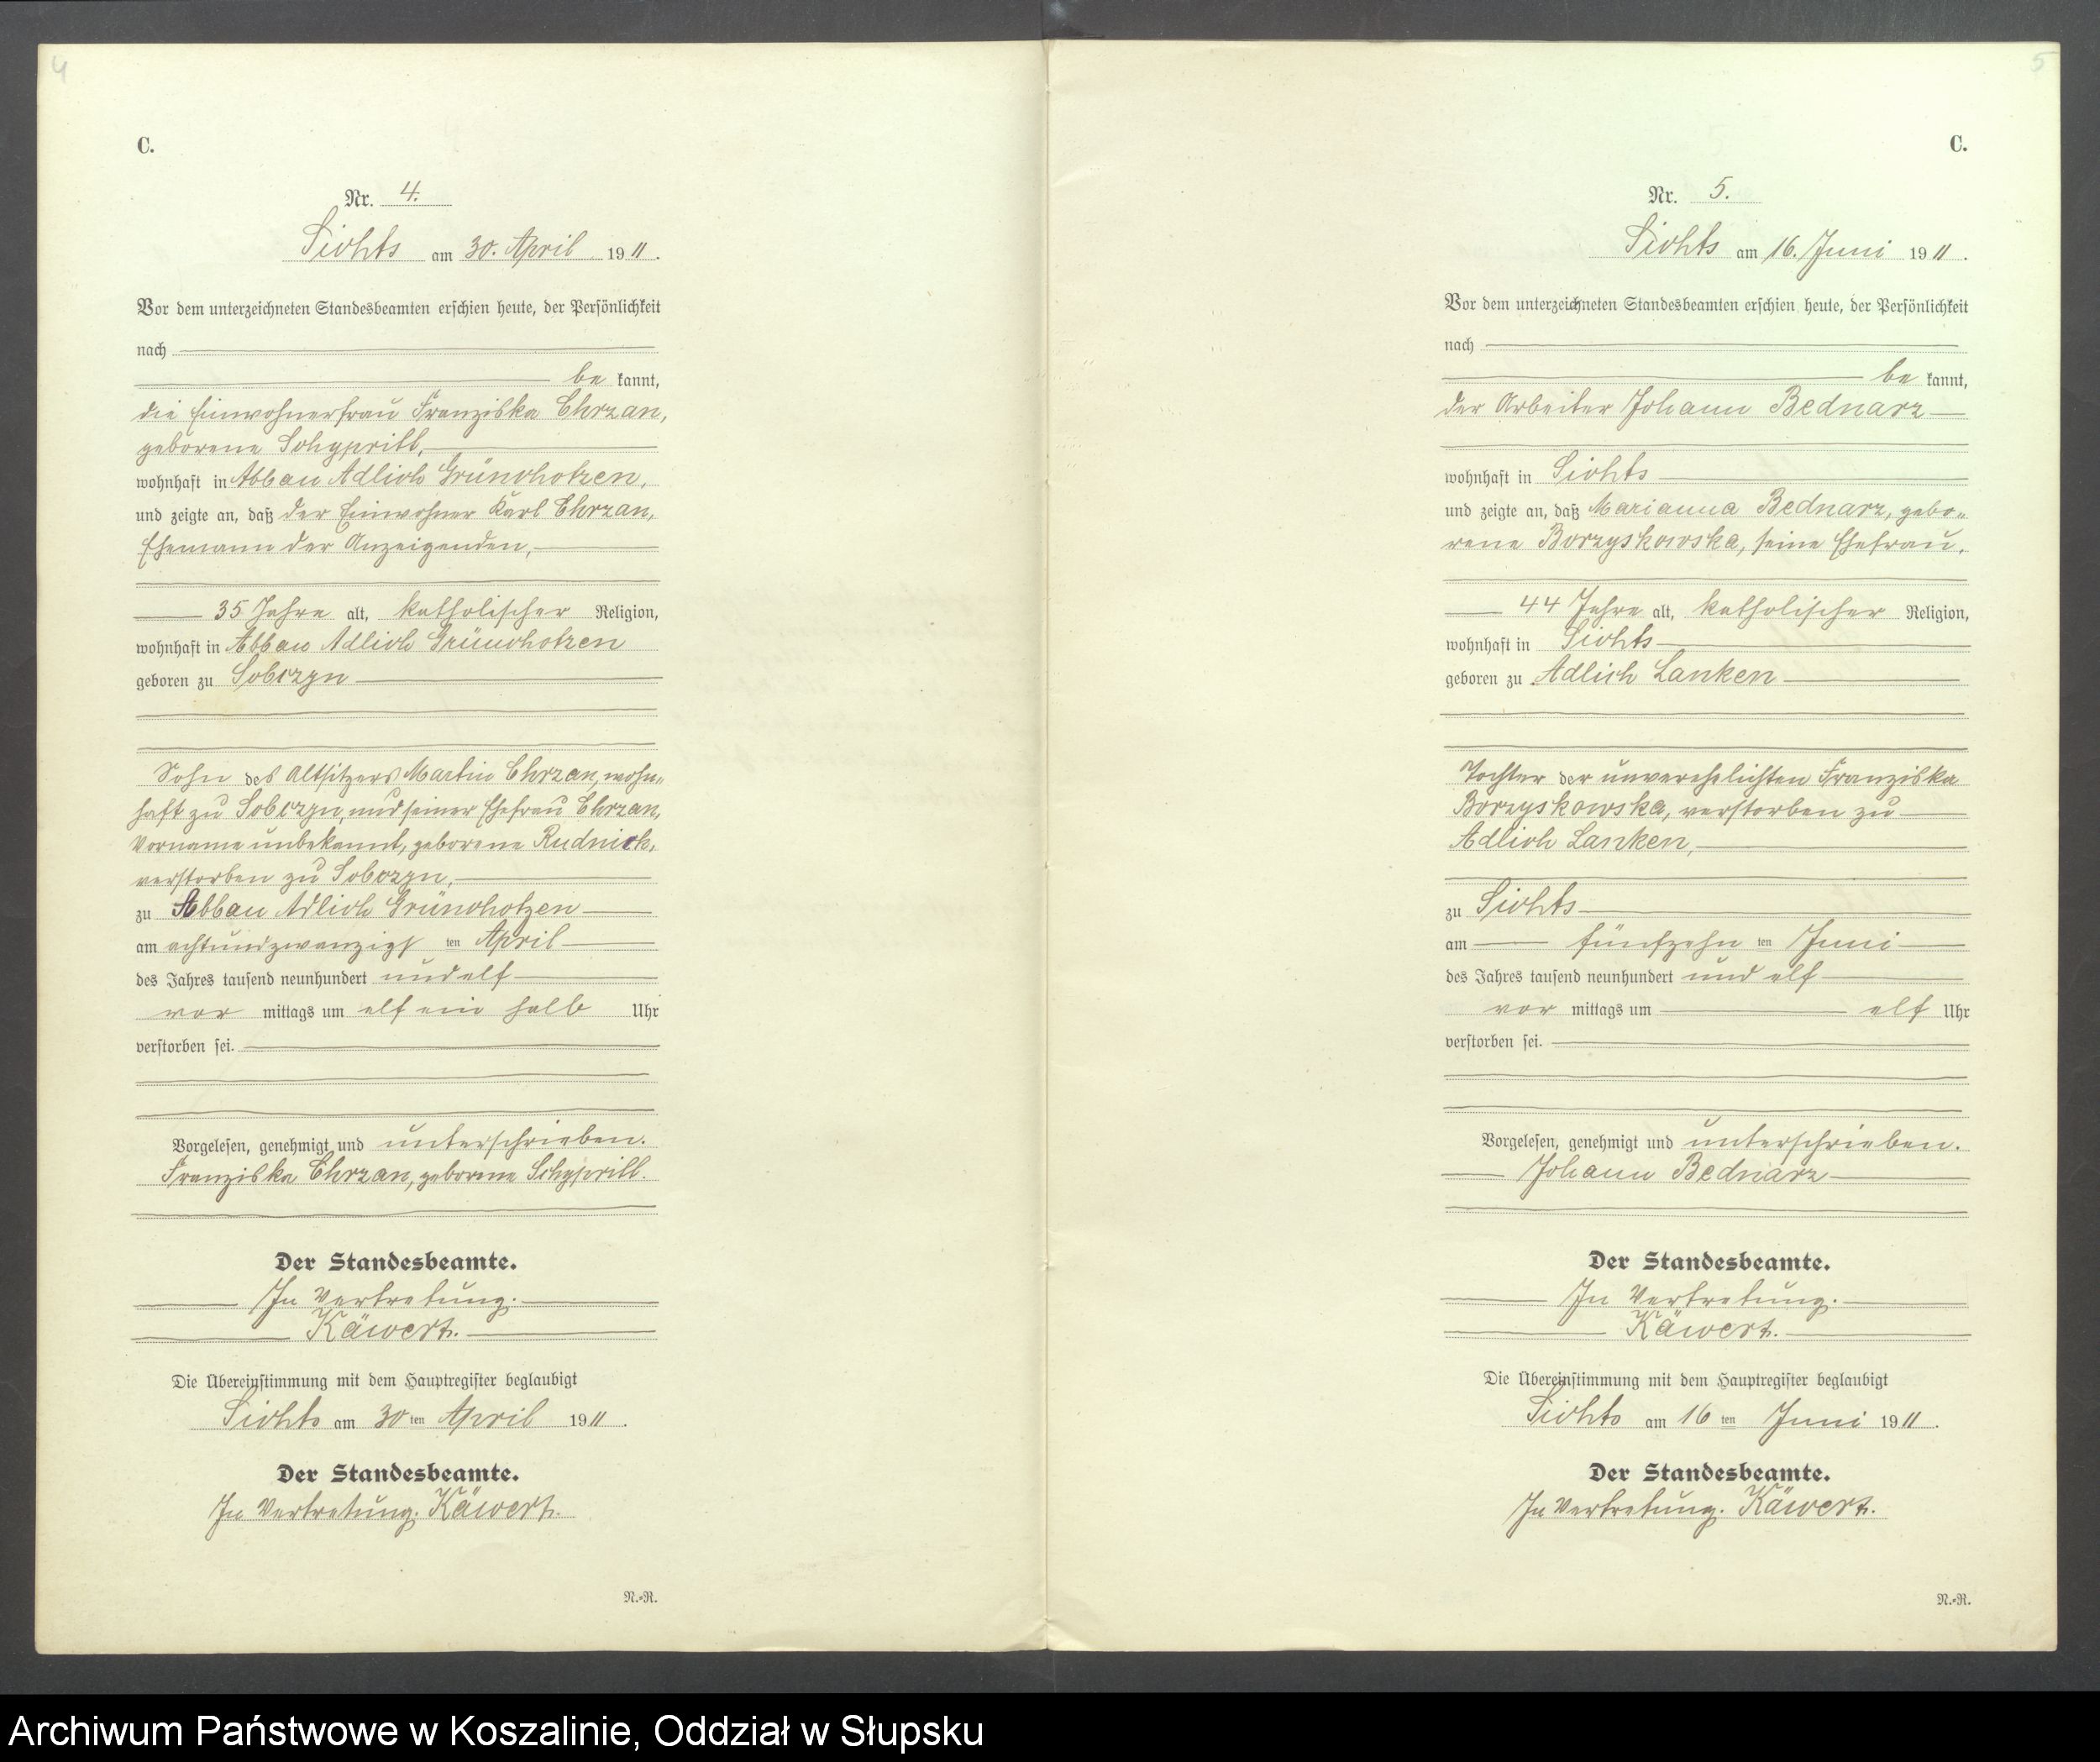 4
C.
Nr. 4.
Lichts am 30. April 1911.
Vor dem unterzeichneten Standesbeamten erschien heute, der Persönlichkeit
nach
be kannt,
die Einwohnerfrau Franziska Chrzan,
geborene Schypritt,
wohnhaft in Abbau Adlich Gründhotzen,
und zeigte an, daß der Einwohner Karl Chrzan,
Ehemann der Anzeigenden,
35 Jahre alt, katholischer Religion,
wohnhaft in Abbau Adlich Gründhotzen
geboren zu Sobczyn
Sohn des Altsitzers Martin Chrzan, wohn-
haft zu Sobczyn, und seiner Ehefrau Chrzan,
Vorname unbekannt, geborene Rudnick,
verstorben zu Sobczyn,
zu Abbau Adlich Gründhotzen
am achtundzwanzigs ten April
des Jahres tausend neunhundert und elf
vor mittags um elf ein halb Uhr
verstorben sei.
Vorgelesen, genehmigt und unterschrieben.
Franziska Chrzan, geborene Schypritt.
Der Standesbeamte.
In Vertretung.
Käwert.
Die Übereinstimmung mit dem Hauptregister beglaubigt
Lichts am 30 ten April 1911.
Der Standesbeamte.
In Vertretung. Käwert.
N.-R.
5
C.
Nr. 5.
Lichts am 16. Juni 1911.
Vor dem unterzeichneten Standesbeamten erschien heute, der Persönlichkeit
nach
be kannt,
der Arbeiter Johann Bednarz
wohnhaft in Lichts
und zeigte an, daß Marianna Bednarz, gebo-
rene Borzyskowska, seine Ehefrau,
44 Jahre alt, katholischer Religion,
wohnhaft in Lichts
geboren zu Adlich Lanken
Tochter der unverehelichten Franziska
Borzyskowska, verstorben zu
Adlich Lanken,
zu Lichts
am fünfzehn ten Juni
des Jahres tausend neunhundert und elf
vor mittags um elf Uhr
verstorben sei.
Vorgelesen, genehmigt und unterschrieben.
Johann Bednarz
Der Standesbeamte.
In Vertretung.
Käwert.
Die Übereinstimmung mit dem Hauptregister beglaubigt
Lichts am 16 ten Juni 1911.
Der Standesbeamte.
In Vertretung. Käwert.
N.-R.
Archiwum Państwowe w Koszalinie, Oddział w Słupsku